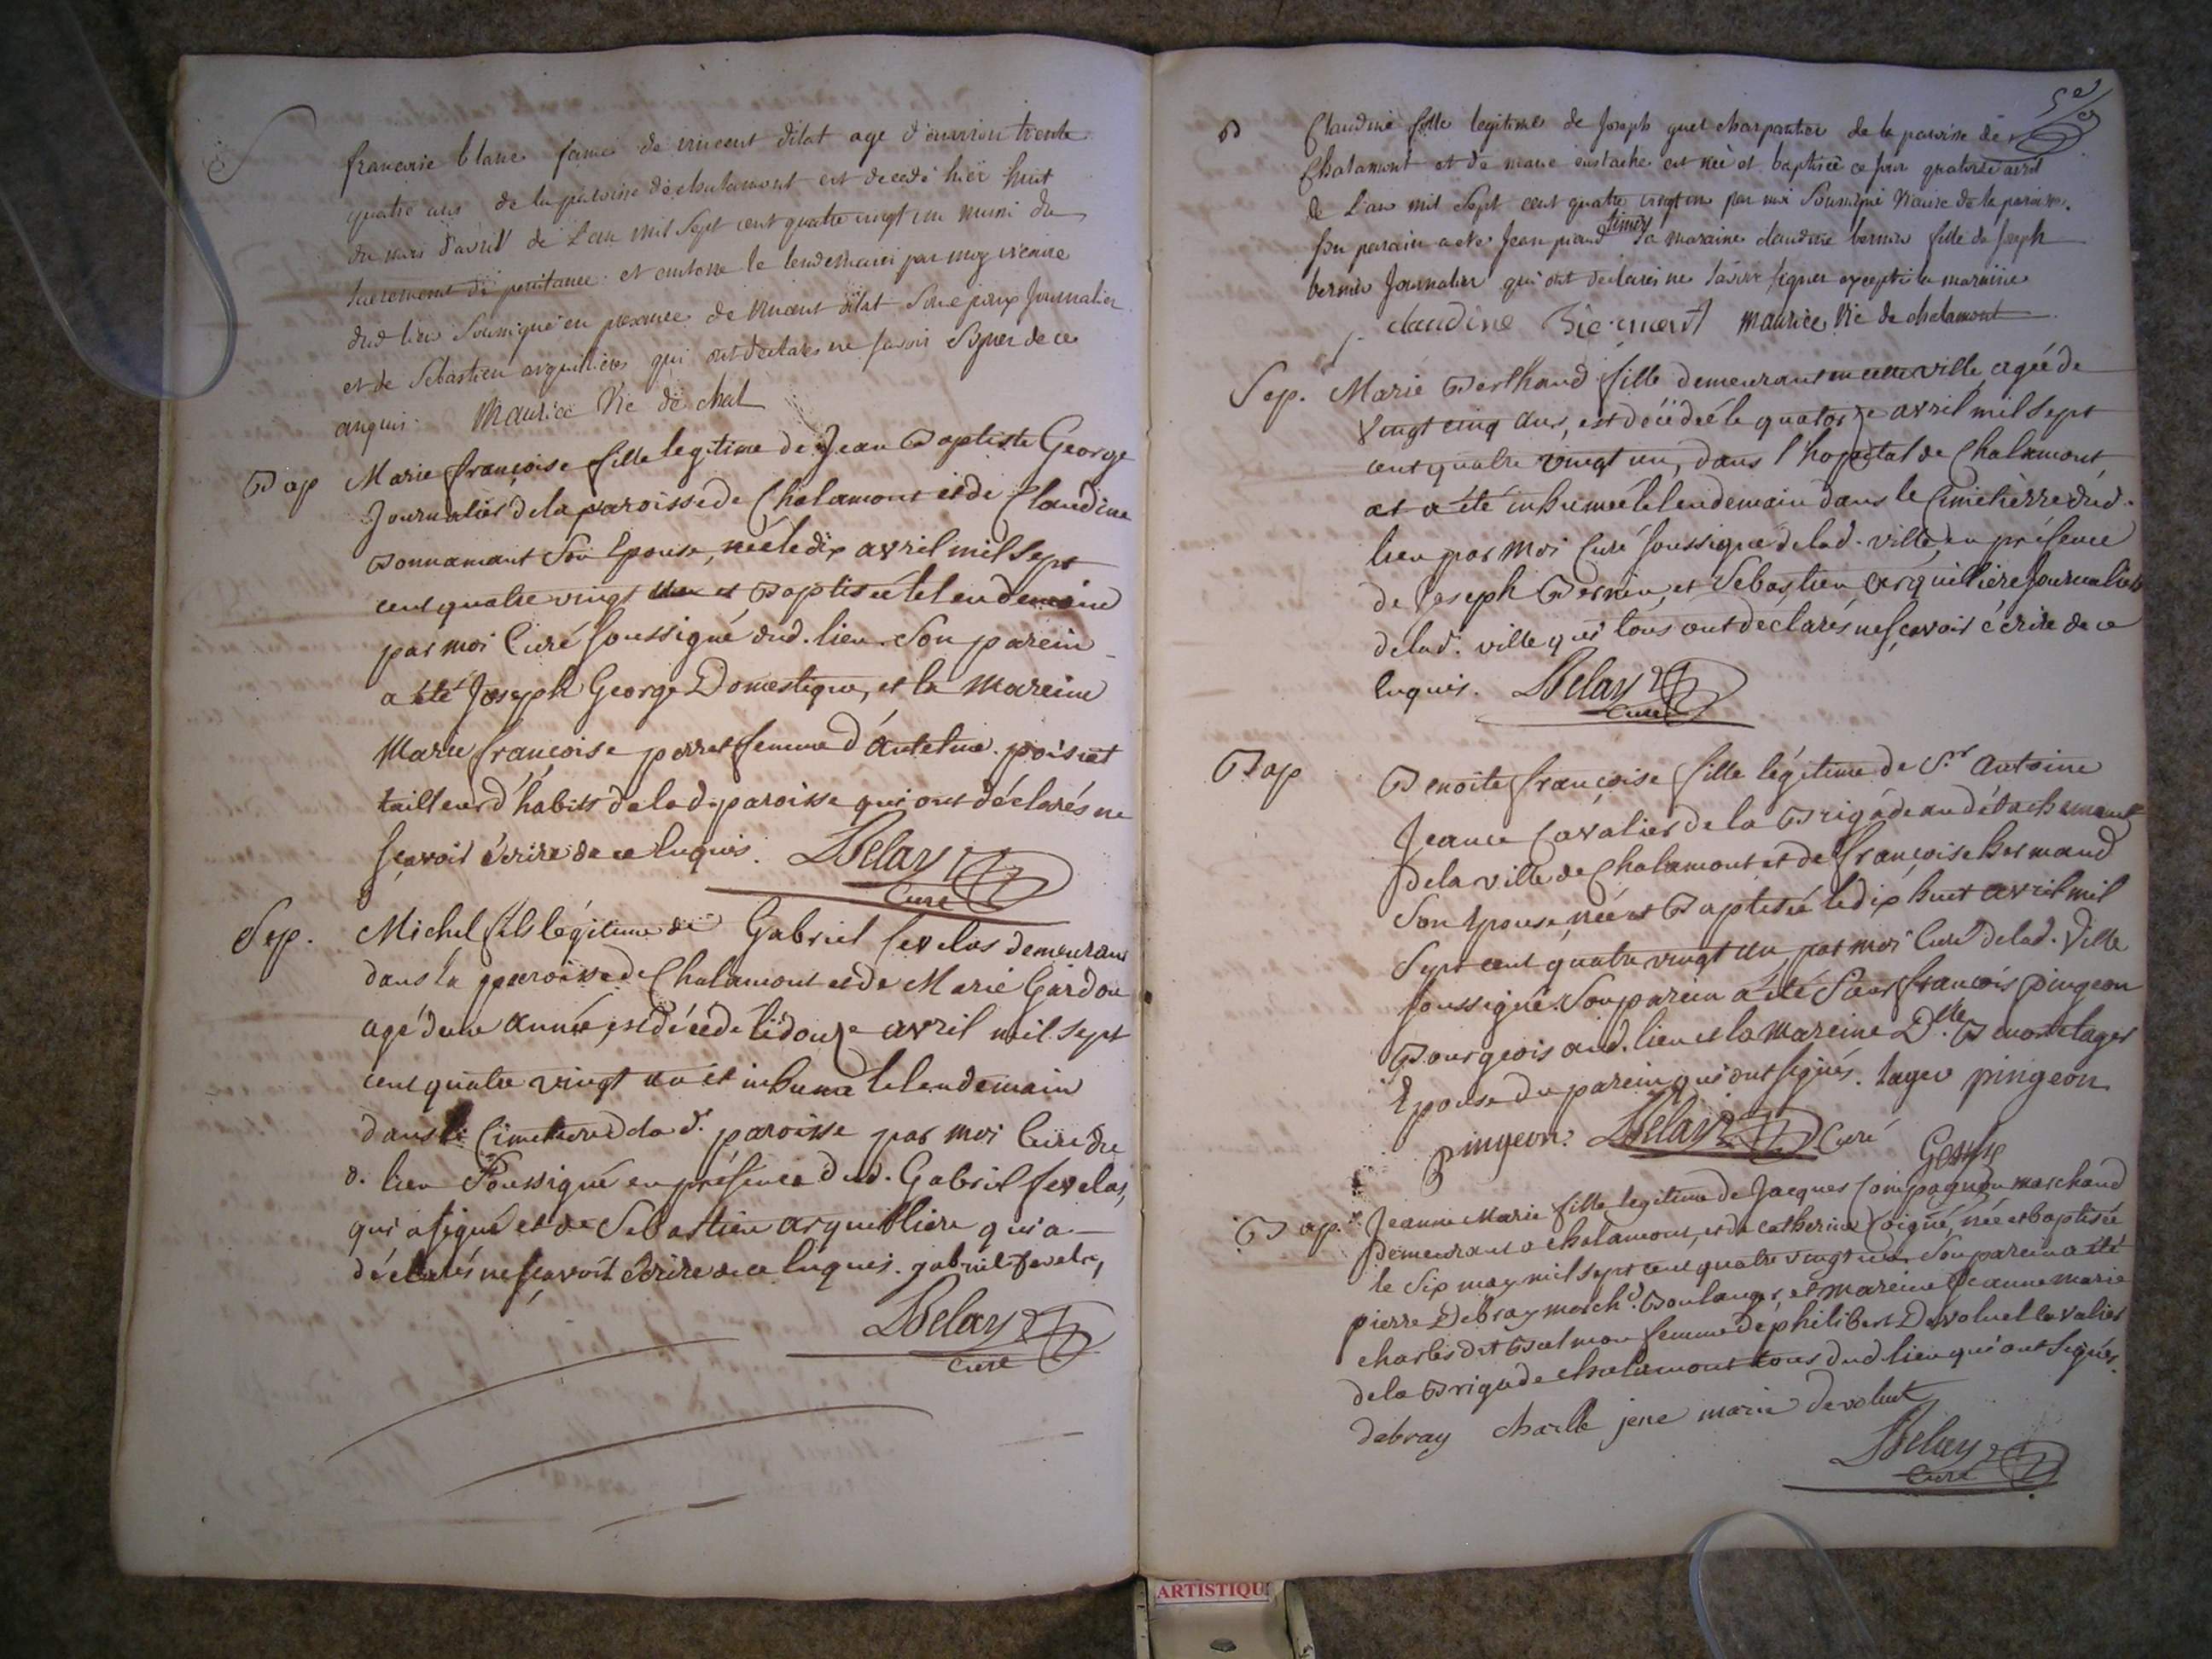 S
francoise blanc fame de vincent dilat age d'environ trente
quatre ans de la paroisse de chalamont est decedé hier huit
du mois d'avril de L'an mil sept cent quatre vingt un muni du
sacrement de penitance et enterre le lendemain par moy vicaire
dud lieu soussigné en presance de vincent dilat journalier
et de Sebastien arguillieres qui ont declarés ne savoir signer de ce
anquis. Maurice Vic de chal
Bap Marie françoise fille legitime de Jean Baptiste George
Journalier de la paroisse de Chalamont et de Claudine
Bonnamant Son Epouse, née le dix avril mil sept
cent quatre vingt un et Baptisée le lendemain
par moi Curé soussigné dud. lieu. Son parein
a été Joseph George Domestique, et la Mareine
Marie françoise perret femme d'Antelme poisiat
tailleur d'habits de lad. paroisse qui ont déclarés ne
sçavoir écrire de ce Enquis. Delay
Curé
Sep. Michel fils légitime de Gabriel fevelas demeurant
dans la paroisse de Chalamont et de Marie Gardon
agé d'une année, est décedé le douze avril mil sept
cent quatre vingt un et inhumé le lendemain
dans le Cimetiere de lad. paroisse par moi Curé du
d. lieu Soussigné en présence dud. Gabriel fevelas,
qui a signé et de Sebastien arguilliere qui a
déclarés ne sçavoir écrire de ce Enquis. gabriel fevela,
Delay
Curé
B Claudine fille legitime de Joseph guet charpantier de la paroisse de
Chalamont et de marie eustache est née et baptisée ce jour quatorze avril
de L'an mil sept cent quatre vingt un par moi Soussigné Vicaire de la paroisse.
son parain a eté Jean la maraine claudine bernin fille de Joseph
bernin Journalier qui ont declarés ne savoir signer excepté la maraine
claudine maurice Vic de chalamont
Sep. Marie Berthaud fille demeurant en cette ville, agée de
Vingt cinq ans, est décédée le quatorze avril mil sept
cent quatre vingt un, dans l'hopital de Chalamont,
et a été inhumée le lendemain dans le Cimetierre dud.
lieu par moi Curé soussigné de lad. ville, en présence
de Joseph Bernin, et Sebastien arquilliere journaliers
de lad. ville qui tous ont déclarés ne sçavoir écrire de ce
Enquis. Delay
Curé
Bap Benoite françoise fille légitime de Sr. Antoine
Jeance Cavalier de la Brigade au détachement
de la ville de Chalamont et de françoise hermand
Son Epouse, née et Baptisée le dix huit avril mil
Sept cent quatre vingt un, par moi Curé de lad. Ville
soussigné. Son parein a été Sieur françois pingeon
Bourgeois aud. lieu et la Mareine Dlle. Benoite lager
Epouse du parein, qui ont signés. lager pingeon
pingeon. Delay Curé
Bap. Jeanne Marie fille legitime de Jacques Compagnon marchand
demeurant a chalamont, et de catherine Coigné, née et baptisée
le six may mil sept cent quatre vingt un. Son parein a été
pierre Debray march.d Boulanger, et mareine Jeanne marie
charles dit Belmon femme de philibert Devoluet Cavalier
de la Brigade chalamont tous dud lieu qui ont signés.
debray charlle jene marie devoluet
Delay
Curé
ARTISTIQU